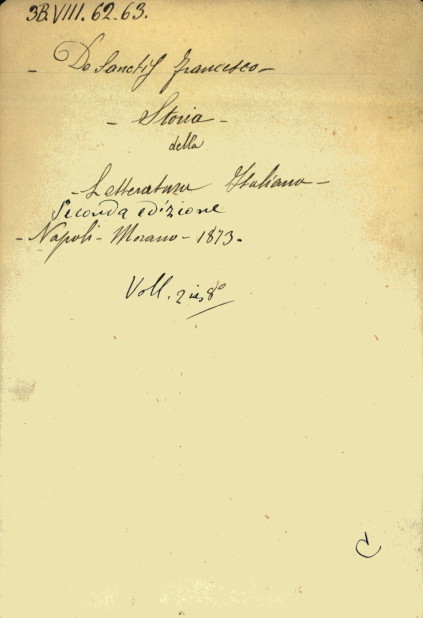 3B.VIII.62.63.
- De Sanctis Francesco -
- Storia -
della
- Letteratura Italiana -
Seconda edizione
- Napoli - Morano - 1873.
Voll. 2 in 8°